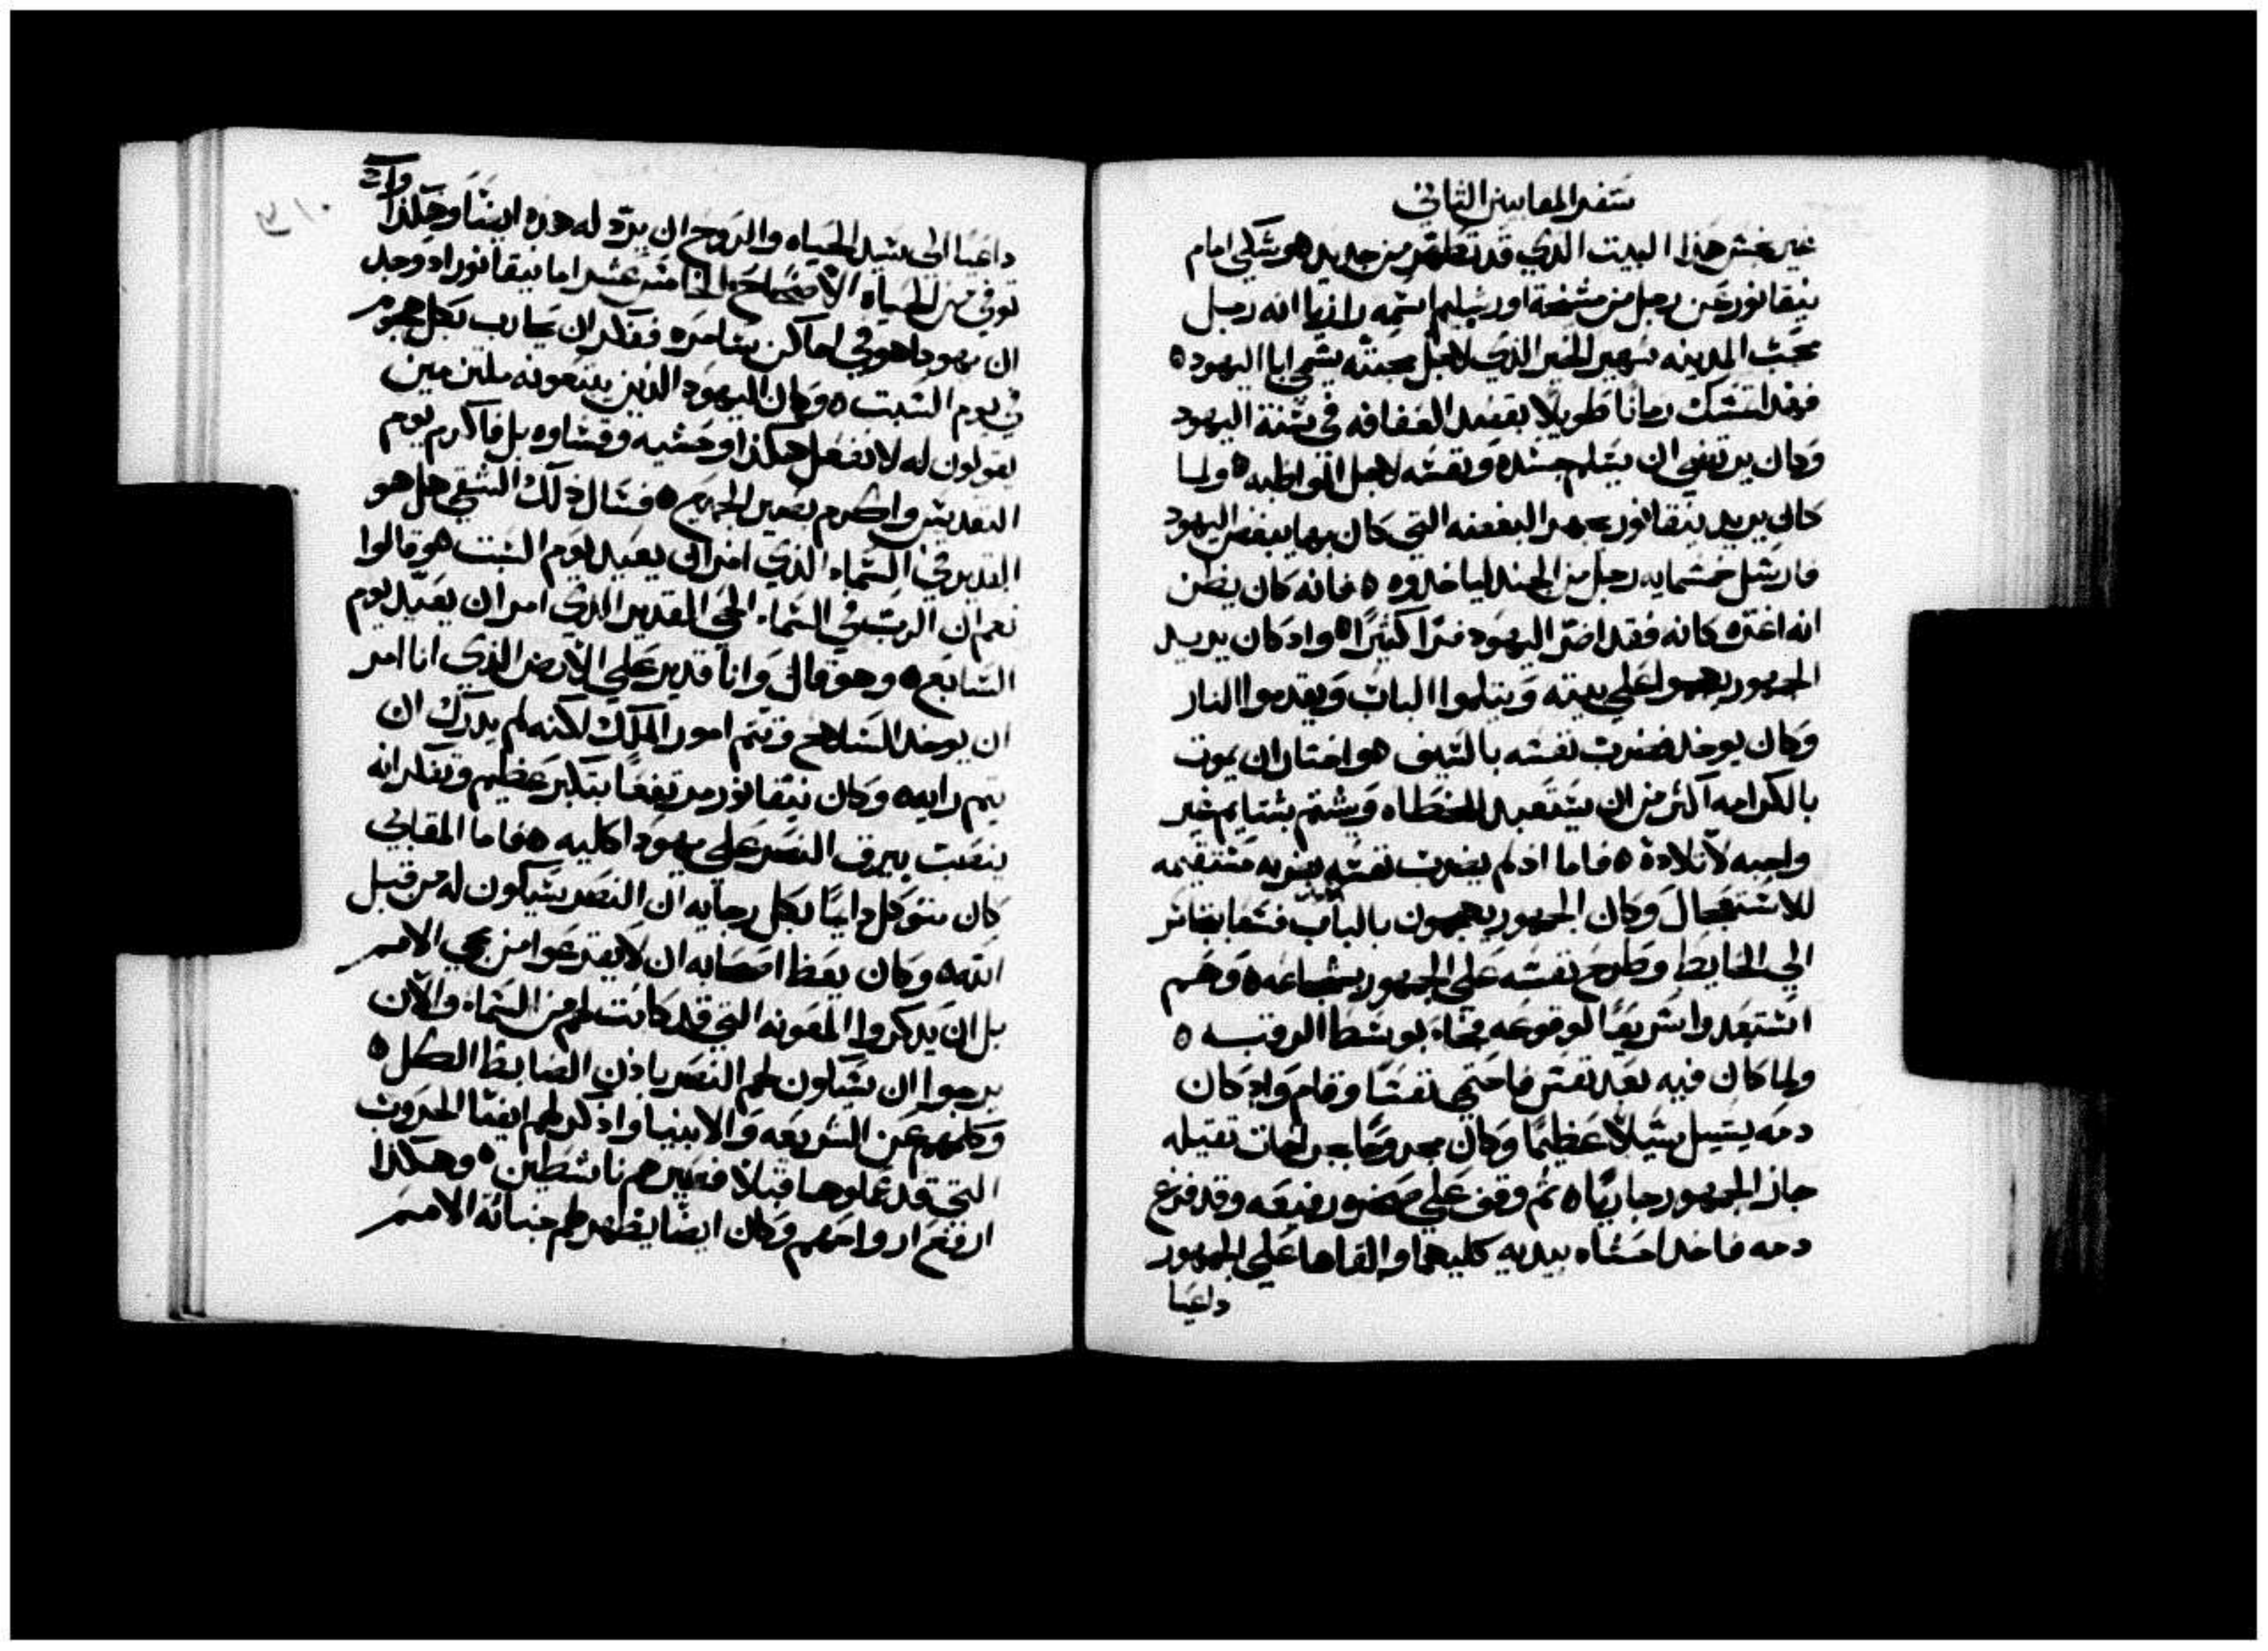 سفر المقابيين الثاني
غير نجس هذا البيت الذي قد تطهر من جديد هو شكي امام
نيقانور عن رجل من مشيخة اورشليم اسمه رازيا انه رجل
محب المدينه شهير الخير الذي لاجل محبته يسمي ابا اليهود ٥
فهذا تمسك زمانا طويلا بقصد العفافه في سنة اليهود
وكان يرتضي ان يسلم جسده ونفسه لاجل المواظبه ٥ ولما
كان يريد نيقانور يجهر البغضه التي كان بها يبغض اليهود
فارسل خمسمايه رجل من الجند لياخذوه ٥ فانه كان يظن
انه اغتره كانه فقد اضر اليهود ضرا كثيرا ٥ واد كان يريد
الجمهور يهجموا علي بيته ويتلموا الباب ويقدموا النار
وكان يوخد فضرب نفسه بالسيف هو اختار ان يموت
بالكرامه اكثر من ان يتعبد للخطاه ويشتم بشتايم غير
واجبه لاتلادة ٥ فاما اد لم يضرب نفسه بضربه مستقيمه
للاستعجال وكان الجمهور يهجمون بالباب فسعا بتجاسر
الي الحايط وطرح نفسه علي الجمهور بشجاعه ٥ وهم
استبعدوا سريعا لوقوعه فجاء بوسط الرقبه ٥
ولما كان فيه بعد نفس فاحتمي نفسا وقام واد كان
دمه يسيل سيلا عظيما وكان مجروحا بجراحات تقيله
جاز الجمهور جاريا ٥ ثم وقف علي صخور رفيعه وقد فرغ
دمه فاخد احشاه بيديه كلتيهما والقاها علي الجمهور
داعيا
داعيا الي سيد الحياه والروح ان يرد له هذه ايضا وهكذا
توفي من الحياه الاصحاح الخامس عشر اما نيقانور اد وجد
ان يهودا هو في اماكن سامره ففكر ان يحارب بكل هجوم
في يوم السبت ٥ وكان اليهود الذين يتبعونه ملزمين
يقولون له لا تفعل هكذا وحشيه وقساوه بل فاكرم يوم
التقديس واكرم بصير الجميع ٥ فسال ذلك الشقي هل هو
القدير في السماء الذي امر ان يعيد يوم السبت هو قالوا
نعم ان الرب في السماء الحي القدير الذي امر ان يعيد يوم
السابع ٥ وهو قال وانا قدير علي الارض الذي انا امر
ان يوخد السلاح وتتم امور الملك لكنه لم يدرك ان
يتم رايه ٥ وكان نيقانور مرتفعا بتكبر عظيم وتفكر انه
ينصب بيرق النصر علي يهودا كليه ٥ فاما المقابي
كان متوكل دايما بكل رجايه ان النصر سيكون له من قبل
الله ٥ وكان يعظ اصحابه ان لا يفزعوا من مجي الامم
بل ان يدكروا المعونه التي قد كانت لهم من السماء والان
يرجوا ان سيكون لهم النصر بادن الضابط الكل ٥
وكلمهم عن الشريعه والانبيا واذكر لهم ايضا الحروب
التي قد عملوها قبلا فصيرهم ناشطين ٥ وهكذا
ارفع ارواحهم وكان ايضا يظهر لهم خيانة الامم